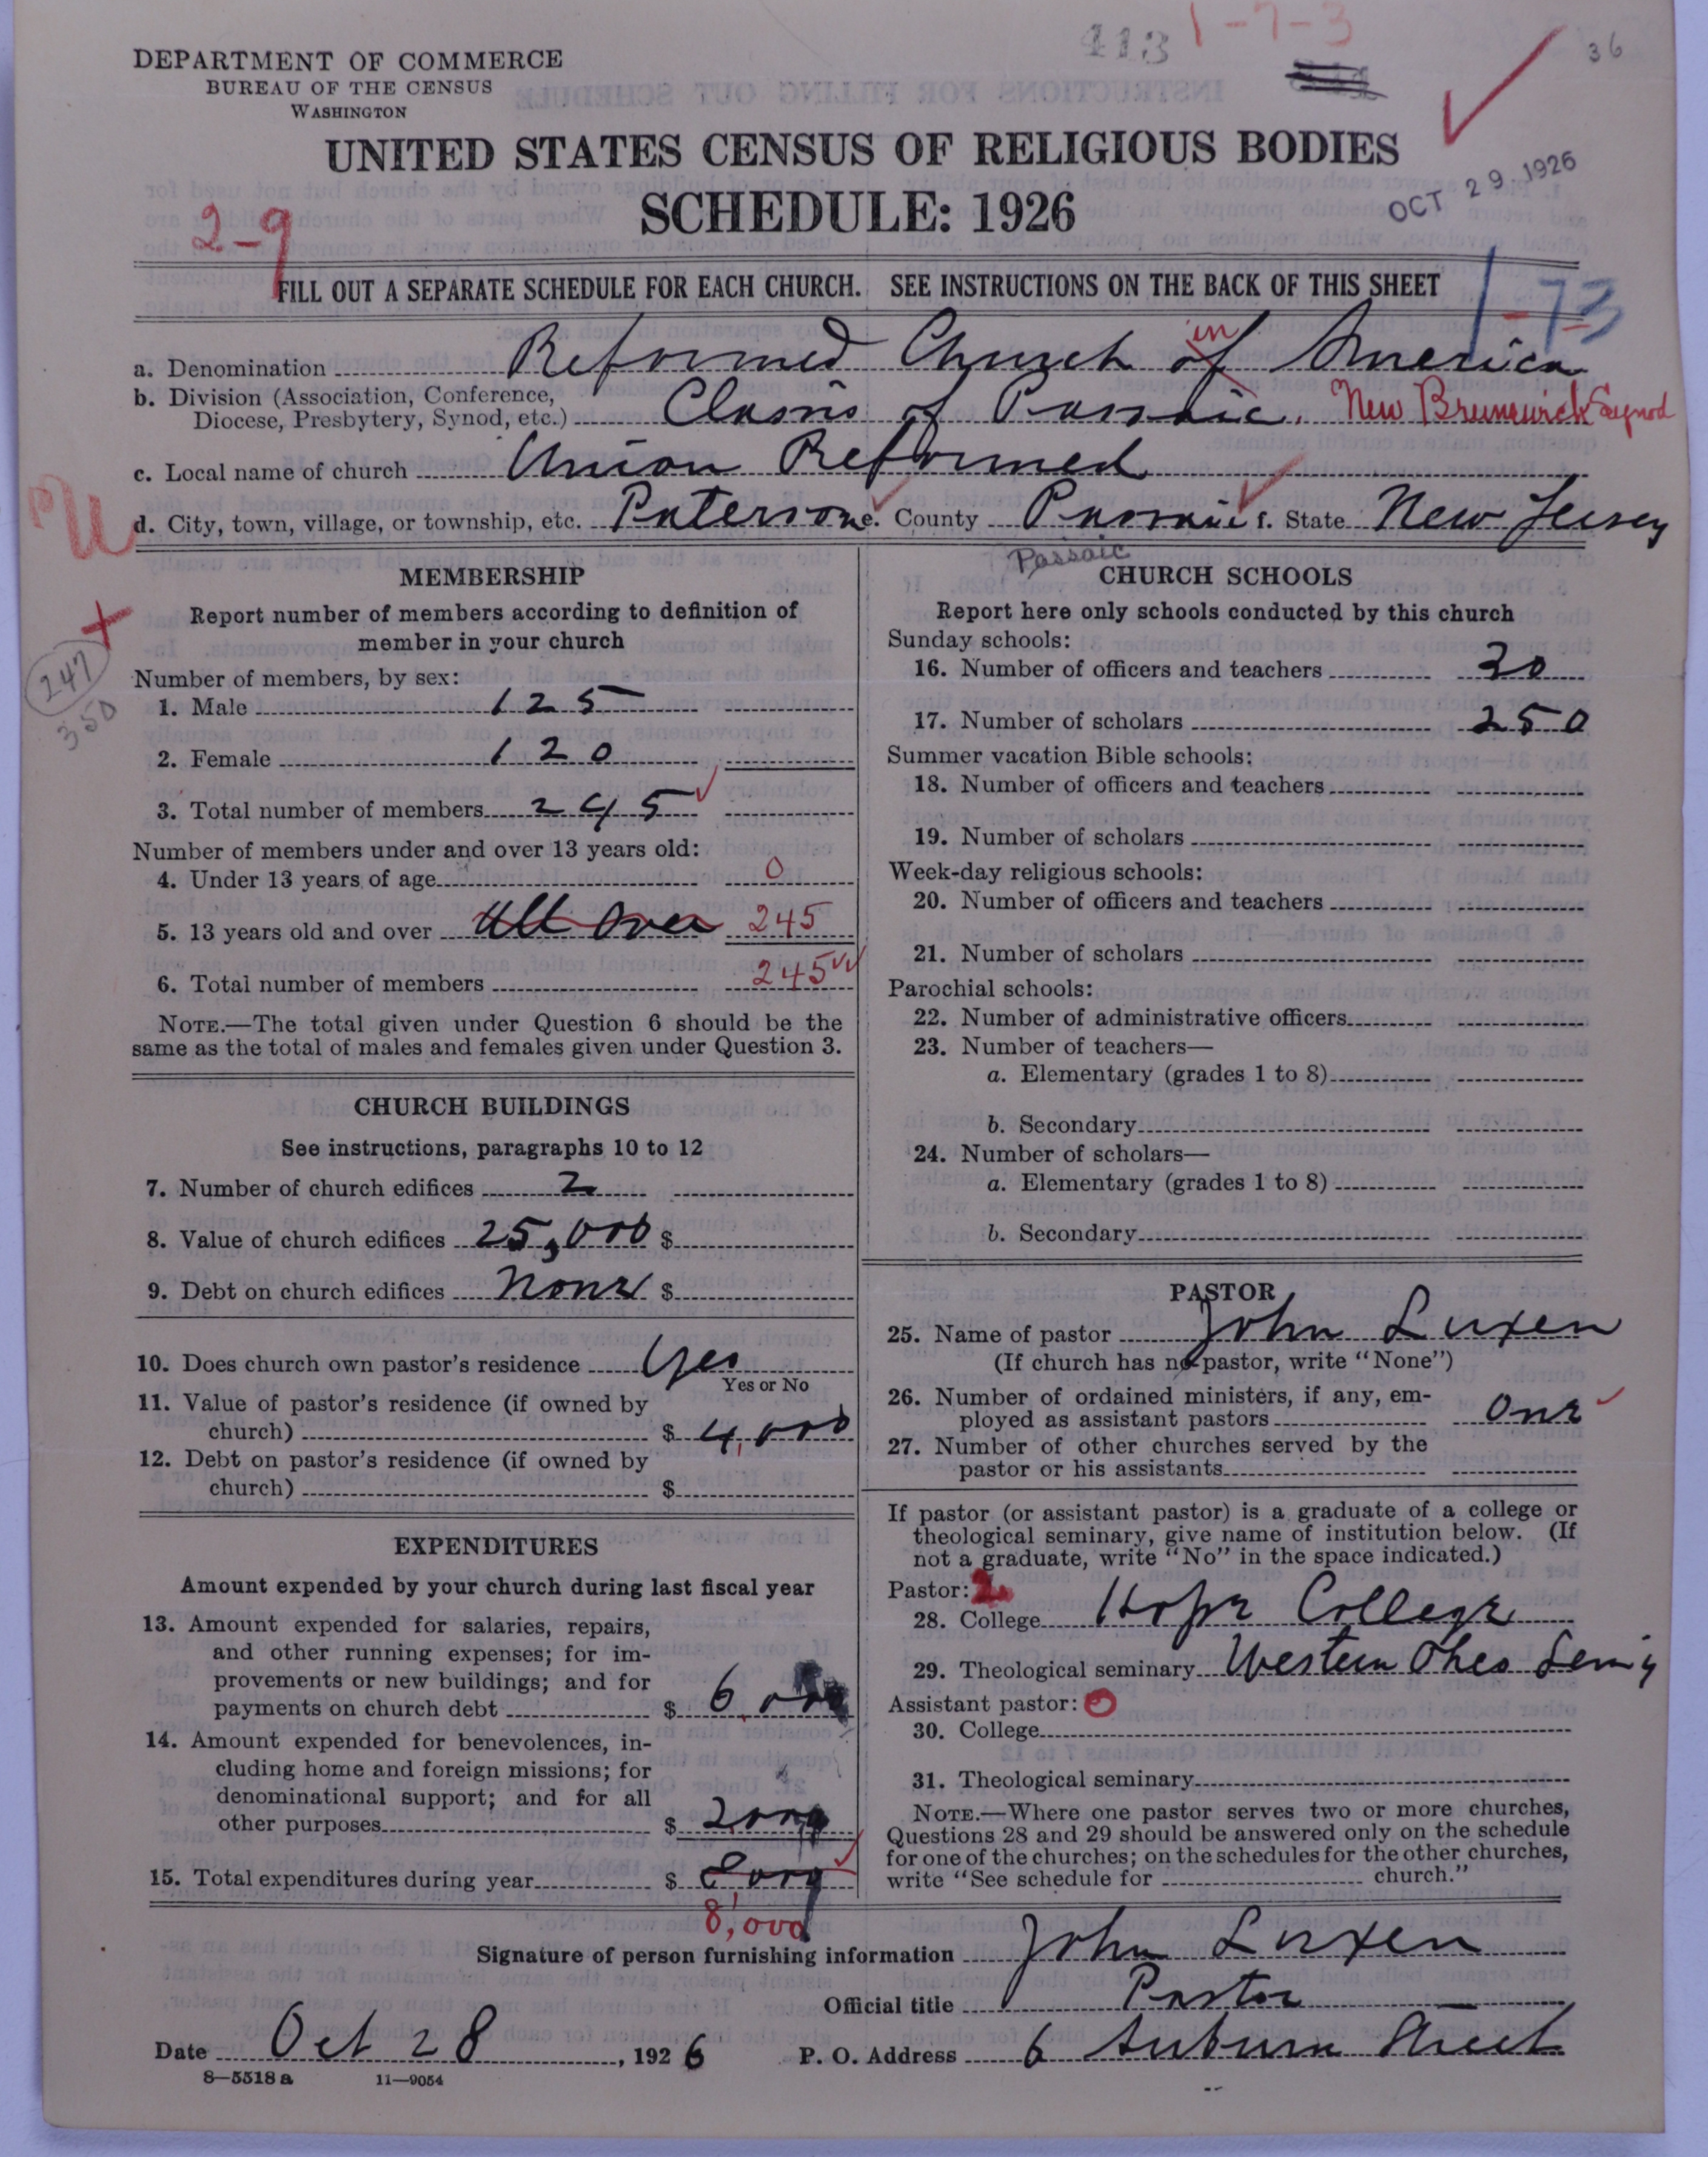 413 1-7-3
36
DEPARTMENT OF COMMERCE
BUREAU OF THE CENSUS
WASHINGTON
UNITED STATES CENSUS OF RELIGIOUS BODIES
SCHEDULE: 1926
OCT 29 1926
2-9
1-73
FILL OUT A SEPARATE SCHEDULE FOR EACH CHURCH. SEE INSTRUCTIONS ON THE BACK OF THIS SHEET
a. Denomination Reformed Church of in America
b. Division (Association, Conference, Diocese, Presbytery, Synod, etc.) Classis of Passaic. New Brunswick Synod
c. Local name of church Union Reformed
d. City, town, village, or township, etc. Paterson e. County Passaic f. State New Jersey
Passaic
U
247
350
MEMBERSHIP
Report number of members according to definition of
member in your church
Number of members, by sex:
1. Male 125
2. Female 120
3. Total number of members 245
Number of members under and over 13 years old:
4. Under 13 years of age 0
5. 13 years old and over All over 245
6. Total number of members 245
NOTE.—The total given under Question 6 should be the
same as the total of males and females given under Question 3.
CHURCH BUILDINGS
See instructions, paragraphs 10 to 12
7. Number of church edifices 2
8. Value of church edifices 25,000 $
9. Debt on church edifices None $
10. Does church own pastor's residence Yes
Yes or No
11. Value of pastor's residence (if owned by
church) $ 4,000
12. Debt on pastor's residence (if owned by
church) $
EXPENDITURES
Amount expended by your church during last fiscal year
13. Amount expended for salaries, repairs,
and other running expenses; for im-
provements or new buildings; and for
payments on church debt $ 6,000
14. Amount expended for benevolences, in-
cluding home and foreign missions; for
denominational support; and for all
other purposes $ 2000
15. Total expenditures during year $ 8000
8,000
CHURCH SCHOOLS
Report here only schools conducted by this church
Sunday schools:
16. Number of officers and teachers 30
17. Number of scholars 250
Summer vacation Bible schools:
18. Number of officers and teachers
19. Number of scholars
Week-day religious schools:
20. Number of officers and teachers
21. Number of scholars
Parochial schools:
22. Number of administrative officers
23. Number of teachers—
a. Elementary (grades 1 to 8)
b. Secondary
24. Number of scholars—
a. Elementary (grades 1 to 8)
b. Secondary
PASTOR
25. Name of pastor John Luxen
(If church has no pastor, write "None")
26. Number of ordained ministers, if any, em-
ployed as assistant pastors One
27. Number of other churches served by the
pastor or his assistants
If pastor (or assistant pastor) is a graduate of a college or
theological seminary, give name of institution below. (If
not a graduate, write "No" in the space indicated.)
Pastor: 2
28. College Hope College
29. Theological seminary Western Theo Semiy
Assistant pastor: 0
30. College
31. Theological seminary
NOTE.—Where one pastor serves two or more churches,
Questions 28 and 29 should be answered only on the schedule
for one of the churches; on the schedules for the other churches,
write "See schedule for church."
Signature of person furnishing information John Luxen
Official title Pastor
Date Oct 28, 1926 P. O. Address 6 Auburn Street
8—5518 a 11—9054